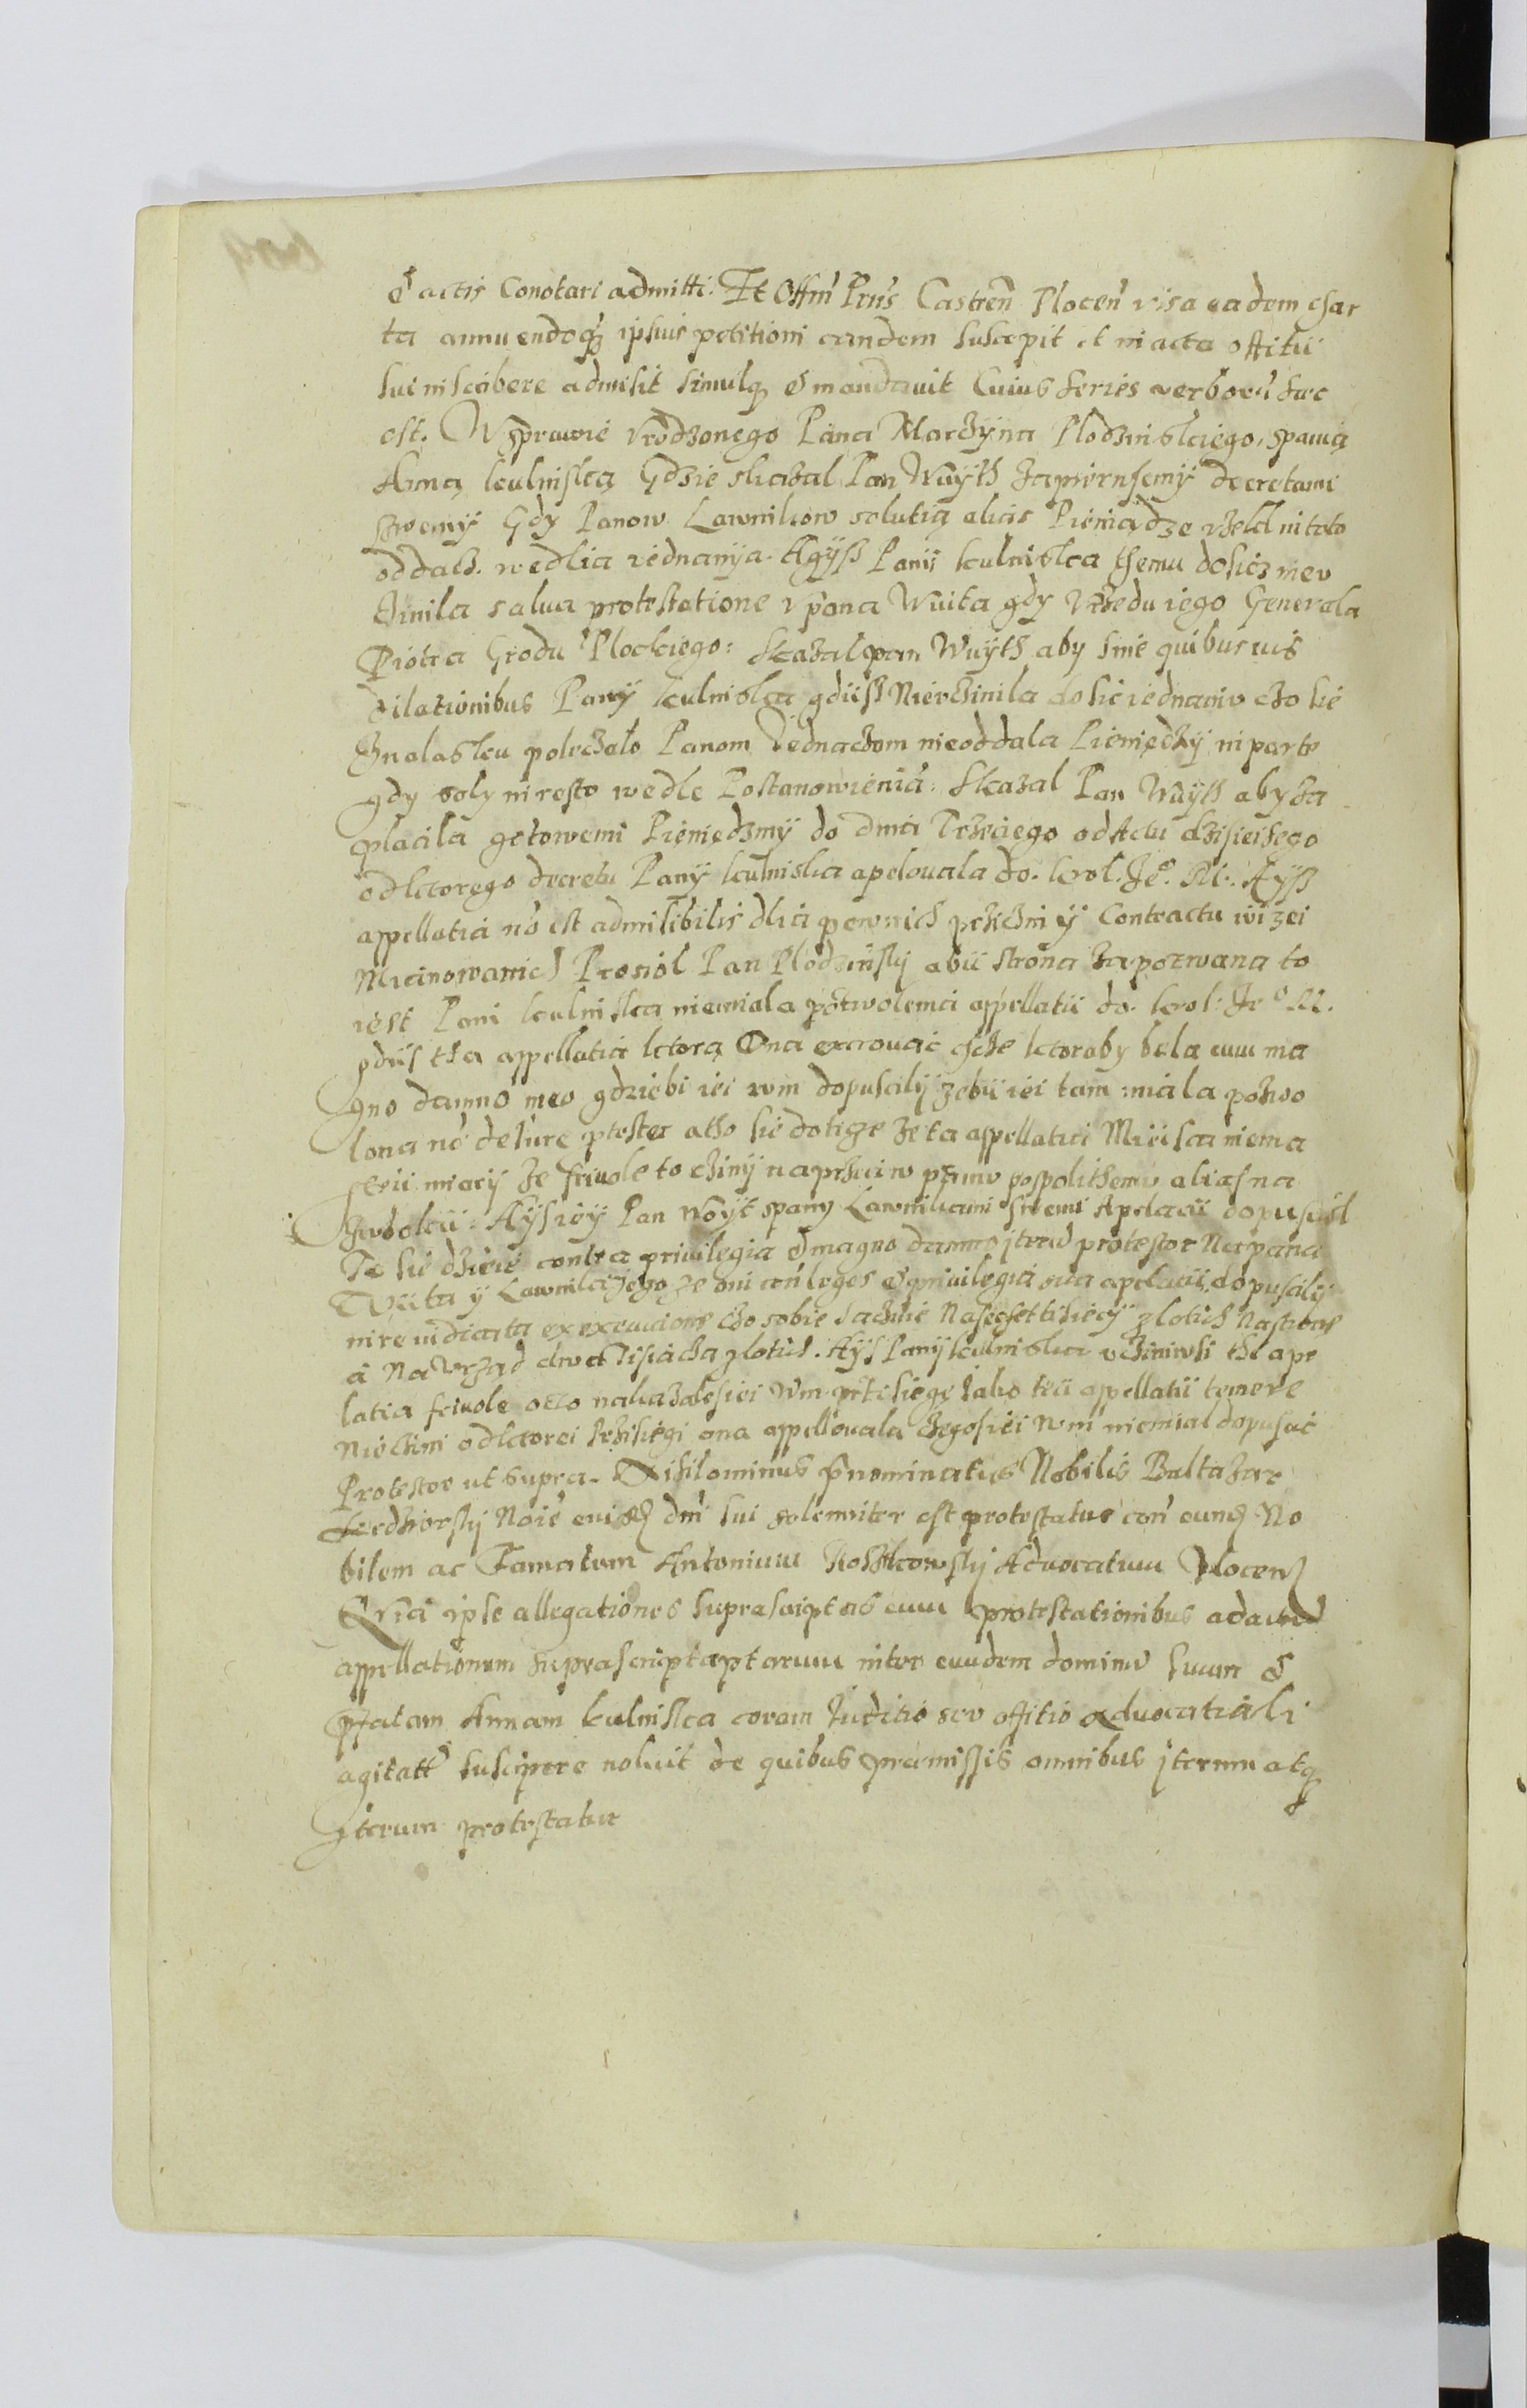 & actis Conotari admitti. Et Offm̃ Prñs Castreñ Ploceñ visa eadem char
ta annuendoq̃ ipsius petitioni eandem suscepit et in acta offitii
sui inscribere admisit simulq̃ & mandavit Cuius series verborũ haec
est. W sprawie vrodzonego Pana Marczÿna Plodzinskiego, spania
Anna kulniską Gdzie skazal Pan Wuÿth zapiernsemÿ decretami
swemÿ Gdÿ Panow Lawnikow solutią alias Pieniądze in toto
oddacz. wedlia iednanÿa. Agÿsz Panij kulniska themu dosicz nieu
czinila salua protestatione v pana Wuita gdy Vrzedu iego Generala
Piotra Grodu Plockiego: skazal pan Wuÿth aby sine quibusuis
dilationibus Panÿ kulniska gdiisz Nieuczinila dosic iednaniu czo sie
Znalasku poleczalo Panom Iednaczom nieoddala Pieniędzÿ in parte
gdy soly in resto wedle Postanowienia: skazal Pan Wuÿth aby za
placila gotowemi Pieniedzmÿ do dnia Trzeciego od Actu dzisieisego
odktorego decretu Panÿ kulniska apelouala do. krol. Je͠. M. Aÿsz
appellatia nõ est admisibilis dlia pewnich prziczin ÿ Contractu wizei
Mianowanie] Prosiol Pan Plodzinskÿ abii strona zapozwana to
iest Pani kulniska niemiala pozwolenia appellatii do. krol. Je͠ M.
gdiis tha appellatia ktorą Ona chcze ktoraby bela cum ma
gno damno meo gdziebi iei wm dopuscilÿ zebii iei tam miala pozwo
lona nẽ de iure ptestor atho sie dotigze ze ta appellatia Mieisca niema
miarÿ ze friuole to czinÿ naprzeciw prawu pospolithemu alias na
zwolcii. Aÿs iÿ Pan Woÿt spanÿ Lawnikami swemi Apelatii dopuscil
To sie dzieie contra privilegia & magno damno iterũ protestor Na pana
Wuita ÿ Lawnika iego, ze oni coñ leges & privilegia apelatii dopuscilÿ
in re iudicata ex execucione czo sobie sachuie Na sescset tisiecÿ zlotich Na
a Na Vrząd dwa Tisiacza zlotich. Aÿs Panij kulniska vcziniwsi tħ ape
latia friuole oto nakazalesiei Wm przisiegę Iako teii appellatii temere
Nieczini odktorei przisiegi ona appellouala czegosiei Wm niemial dopuscic
Protestor ut supra. Nihilominus p̃nominatus Nobilis Baltazar
Noiẽ dñi sui solemniter est protestatus coñ eund̃ No
bilem ac Famatum Antonium Advocatum Ploceñ
Quia ipse allegationes suprascriptas cum protestationibus ad actũ
appellationem suprascriptaptarum inter eundem dominũ suum &
p̃fatam Annam kulniska coram Iuditio seu offitio advocatiali
agitatt̃ suscipere noluit de quibus praemissis omnibus iterum atq̃
iterum protestatur